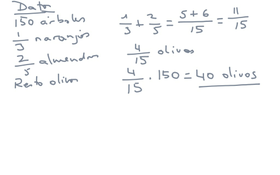 Datos
150 árboles
1/3 naranjos
2/5 almendros
Resto olivos
1/3 + 2/5 = 5+6/15 = 11/15
4/15 olivos
4/15 · 150 = 40 olivos